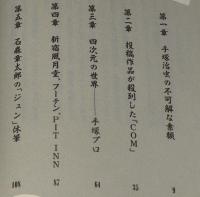 第一章　手塚治虫の不可解な素顔　9
第二章　投稿作品が殺到した「COM」　35
第三章　四次元の世界――手塚プロ　64
第四章　新宿風月堂、フーテン、PIT INN　87
第五章　石森章太郎の「ジュン」休筆　108